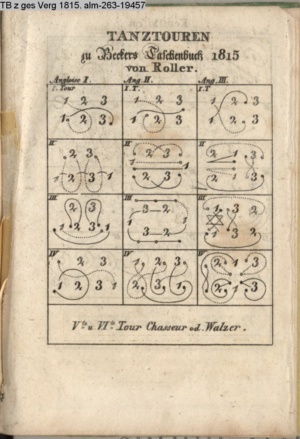 TB z ges Verg 1815. alm-263-19457
TANZTOUREN
zu Beckers Taschenbuch 1815
von Roller.
Angloise I. Ang II. Ang. III.
I. Tour I. T. I. T
1 2 3 1 2 3 1 2 3
1 2 3 1 2 3 1 2 3
II II II
2 3 2 3 2 3
1 2 3 1 2 3 1 2 3
III III III
2 3 2 3 1 3 2
1 2 3 1 3 2 1 3 2
IV IV IV
1 2 3 1 2 3 2 3
1 2 3 1 2 3 1 2 3
Vte u VIte Tour Chasseur od. Walzer.